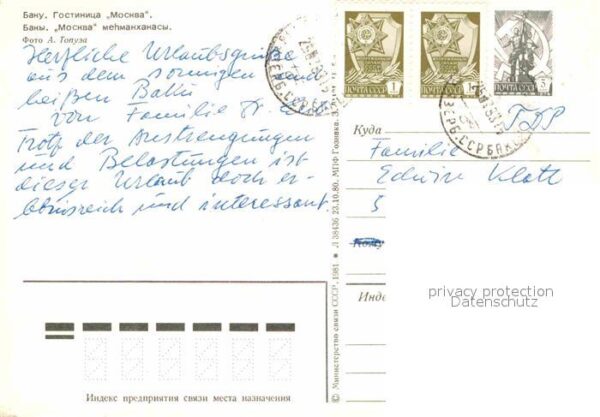 Баку. Гостиница „Москва".
Бакы. „Москва" меһманханасы.
Фото А. Топуза
Herzliche Urlaubsgrüße
aus dem sonnigen und
heißen Baku
von Familie
Trotz der Anstrengungen
und Belastungen ist
dieser Urlaub doch er-
lebnisreich und interessant
1
ПОЧТА СССР
1
ПОЧТА СССР
3
ПОЧТА СССР
Куда
DDR
Familie
Klatt
5
Кому
Инде
privacy protection
Datenschutz
© Министерство связи СССР, 1981 ★ Л 38436 23.10.80. МПФ Гознака.
Индекс предприятия связи места назначения